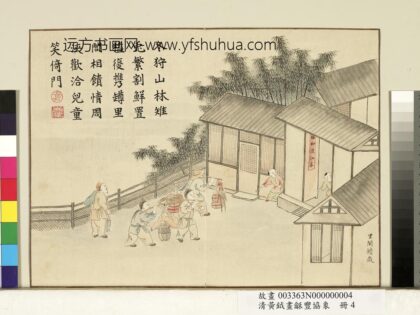 远方书画网 www.yfshuhua.com
冬狩山林雉
兔繁割鮮置
後携罇里
閭相饋情周
匝歡洽兒童
笑倚門
里閭饋歲
故畫 003363N000000004
清黃鉞畫龢豐協象 冊 4